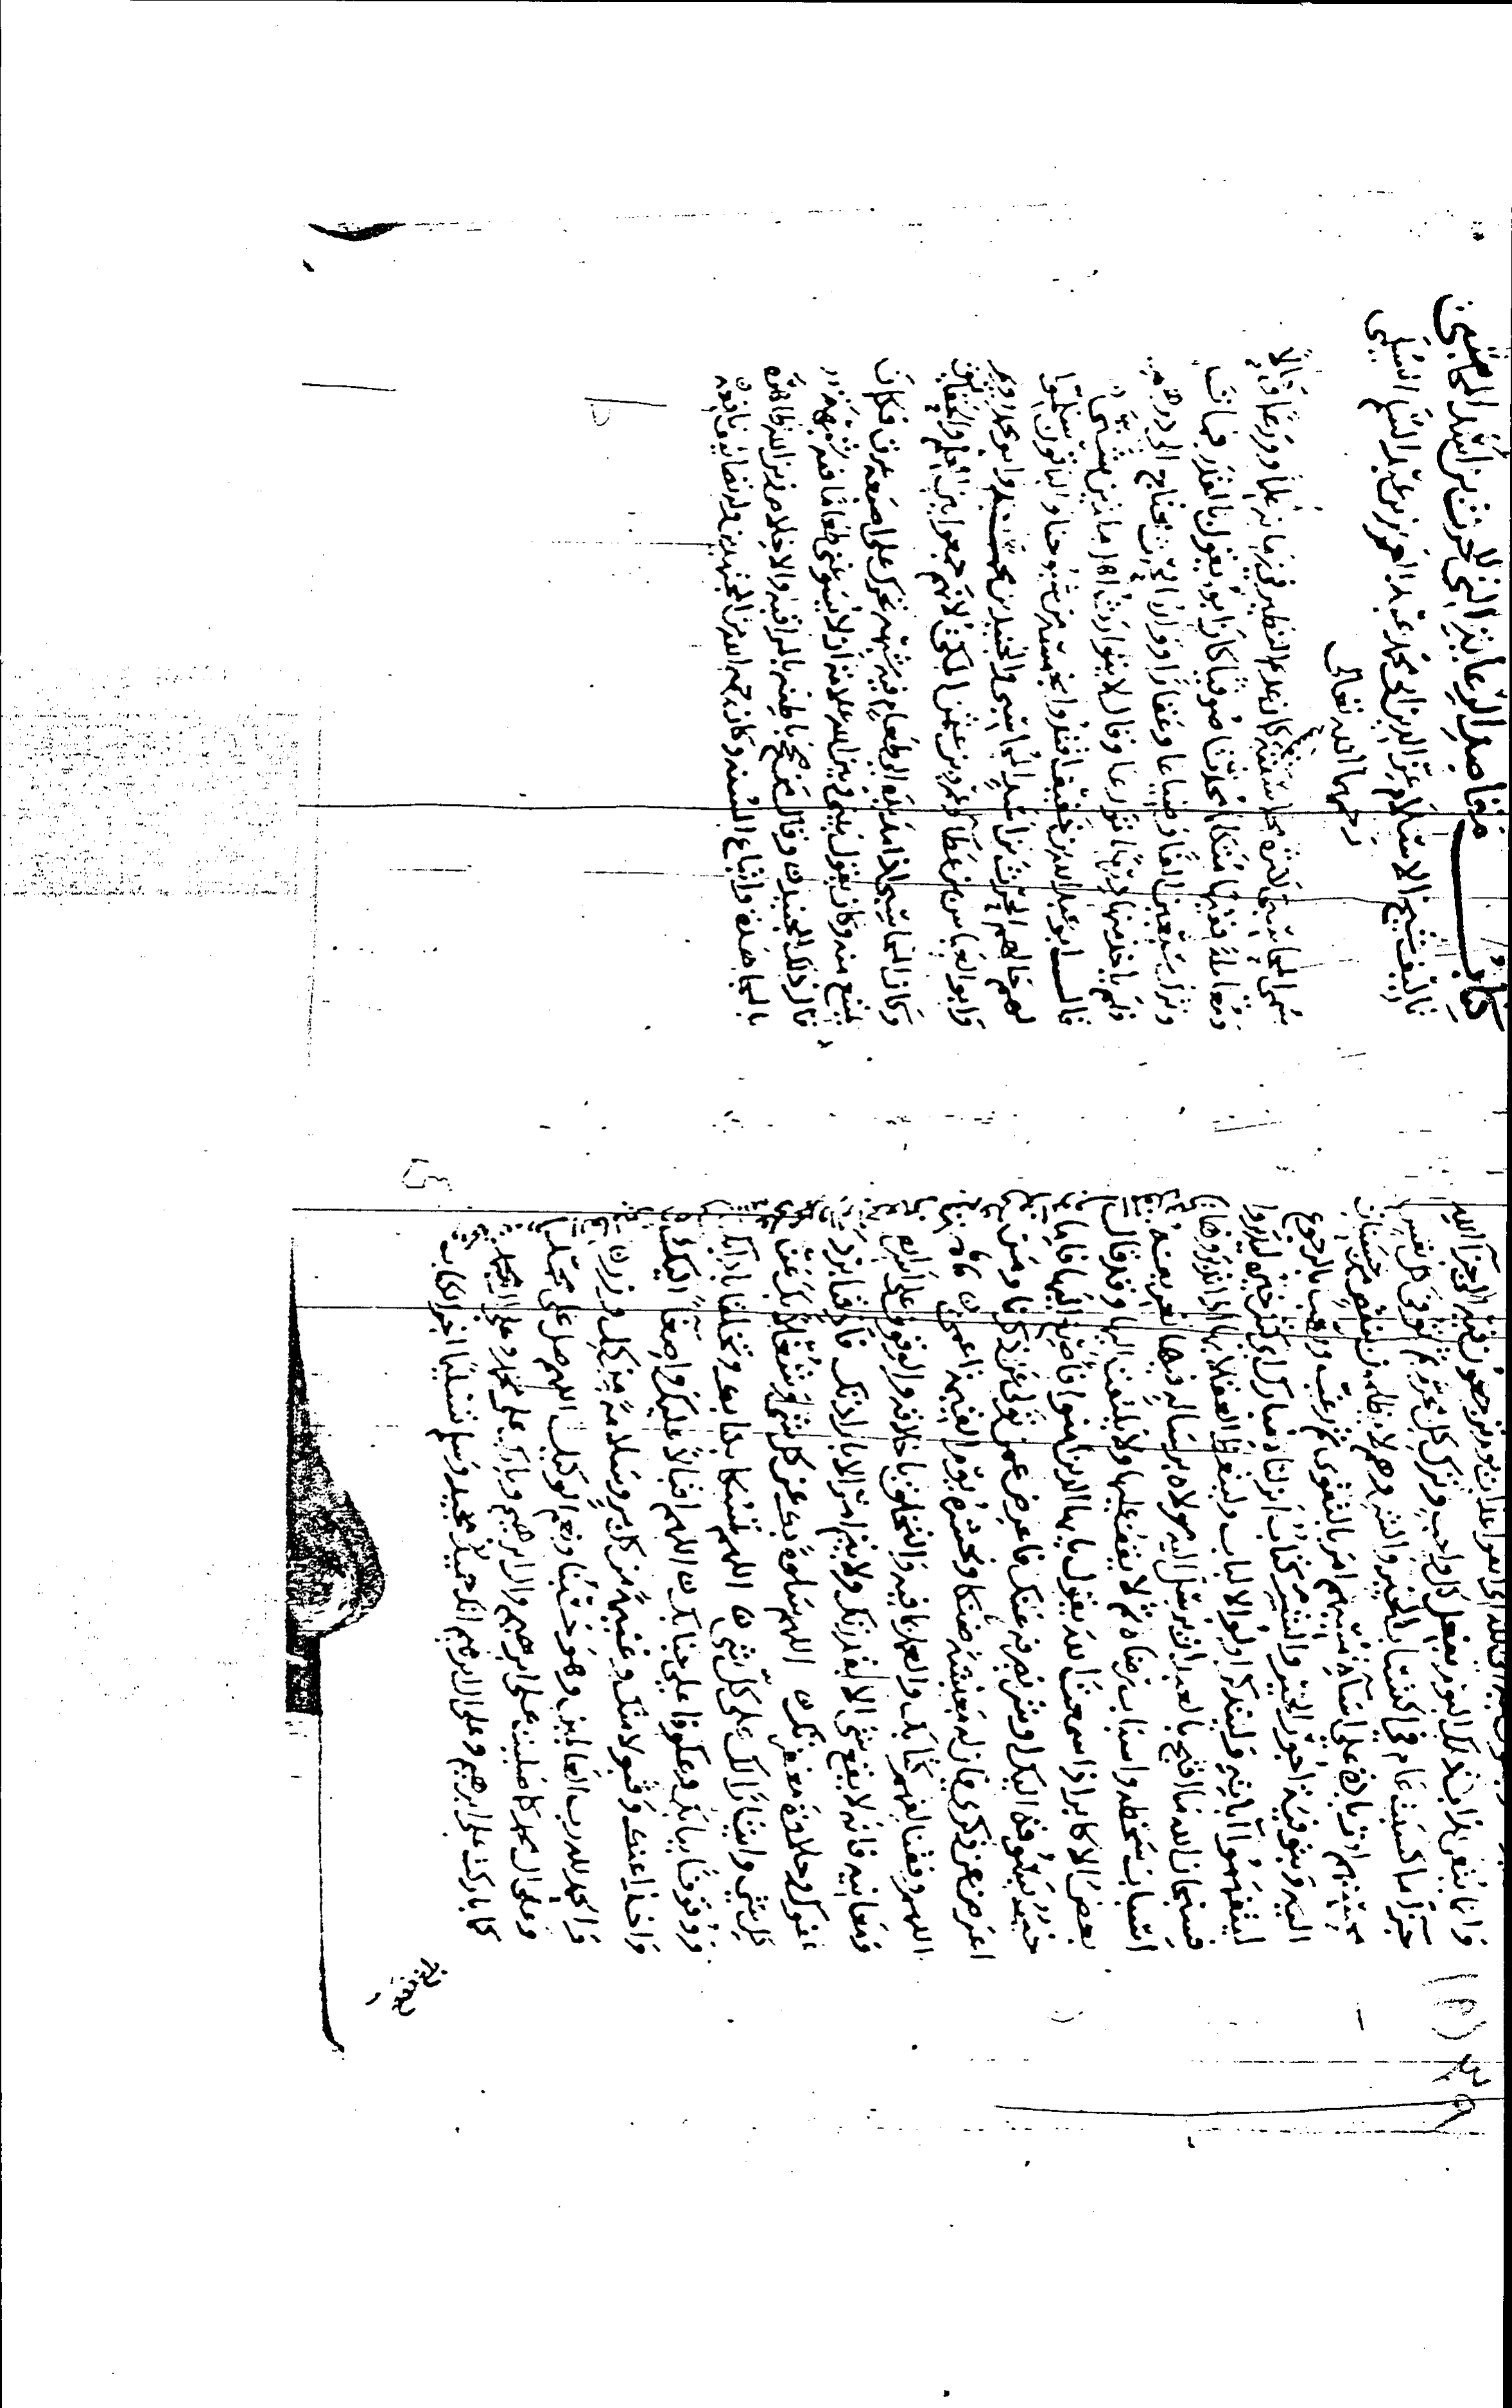 وانما يتقي هذا بتذكر اليوم بفعل كل واجب وترك كل محرم ثم توفى كل نفس
جزآء ما كسبت عام في اكتساب الخير والشر وهم لا يظلمون بنقص من حسنات
محسنهم او زيادة على اسآءة مسيئهم امر بالتقوى ثم رغب ورهب بالرجوع
اليه وبتوفية اجور الخير والشر كتاب انزلناه مبارك اي كثير خيره ليدبروا
ليتفهموا اياته وليتذكر اولوا الالباب وليتعظ العقلاء بها
فسبحان الله ما اقبح بالعبد ان يرسل اليه مولاه برسالة فيها تعريفه
اسباب سخطه واسباب رضاه ثم لا يقف عليها ولا يلتفت اليها وقد قال
بعض الاكابر اذا سمعت الله يقول يا ايها الذين امنوا فاصغ اليها فانها
خير يسوقه اليك او شر يصرفه عنك فاعرض عمن تولى عن ذكرنا ومن
اعرض عن ذكري فان له معيشة ضنكا ونحشره يوم القيمة اعمى
اللهم وفقنا لفهم كتابك والعمل بما فيه والتخلق باخلاقه والوقوف على
ومعانيه فانه لا يقع شي الا بقدرتك ولا يتم امر الا بارادتك فاذقنا برد
عفوك وحلاوة مغفرتك اللهم سلوة بك عن كل شي وشغلا بك عن
كل شي وايثارا لك على كل شي اللهم تمسكا بكتابك وتخلقا بادابك
ووقوفا ببابك وعكوفا على جنابك اللهم اقبالا عليك واصغآء اليك
واخذا عنك وقبولا منك وغنيمة من كل بر وسلامة من كل وزر
والحمد لله رب العالمين وهو حسبنا ونعم الوكيل اللهم صل على محمد
وعلى ال محمد كما صليت على ابرهيم وال ابرهيم وبارك على محمد وعلى ال محمد
كما باركت على ابرهيم وعلى ال ابرهيم انك حميد مجيد وسلم تسليما اخر الكتاب
كتاب مقاصد الرعاية لابي الحرث بن اسد المحاسبي
تاليف شيخ الاسلام عز الدين ابي محمد عبد العزيز بن عبد السلم السلمي
رحمهما الله تعالى
سمي المحاسبي لكثرة محاسبته نفسه كان عديم النظير في زمانه علما وورعا وحالا
ومعاملة فقيها متكلما محدثا صوفيا كان ابوه يقول بالقدر فمات
وترك سبعين الفا وضياعا وعقارا وورثه الحرث محتاج الى درهم
فلم ياخذ منها درهما تورعا وقال لا يتوارث اهل ملتين بشي
قال ابو عبد الله بن خفيف اقتدوا بخمسة من شيوخنا والباقون سلموا
لهم حالهم الحرث بن اسد المحاسبي والجنيد بن محمد وابو محمد رويم
وابو العباس بن عطا وعمرو بن عثمن المكي لانهم جمعوا بين العلم والحقايق
وكان المحاسبي اذا مد يده الى طعام فيه شبهه تحرك على اصبعه عرق فكان
يمتنع منه وكان يقول بيني وبين الله علامة ان لا يسوغني طعاما فيه شبهة
قال ذلك للجنيد وقال من صحح باطنه بالمراقبة والاخلاص زين الله ظاهره
بالمجاهدة واتباع السنة وكان رحمه الله من المجتهدين وله تصانيف نافعة